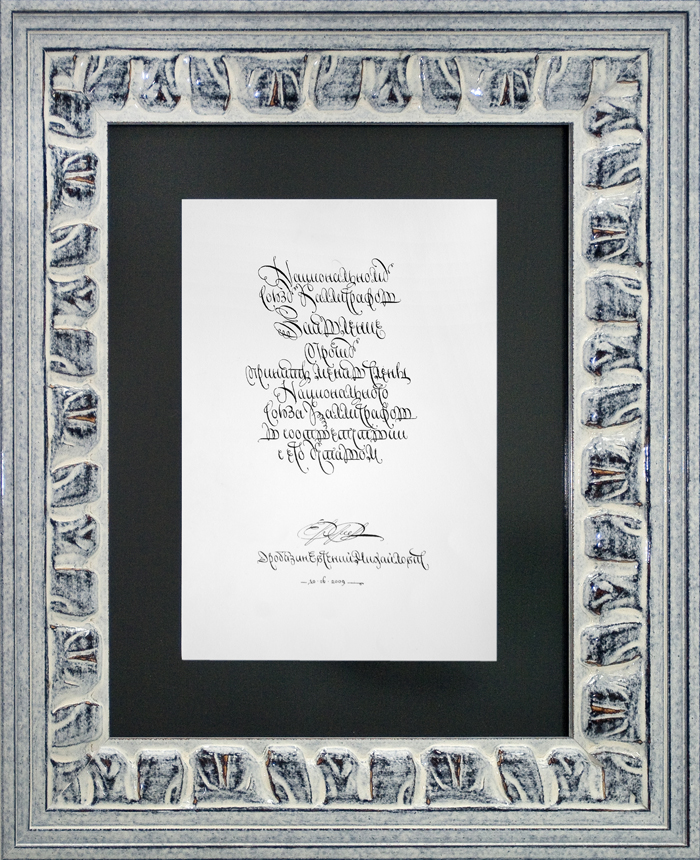 Национальный
Союз Каллиграфов
Заявление
Прошу
принять меня в члены
Национального
Союза Каллиграфов
в соответствии
с его Уставом
Дробязин Евгений Михайлович